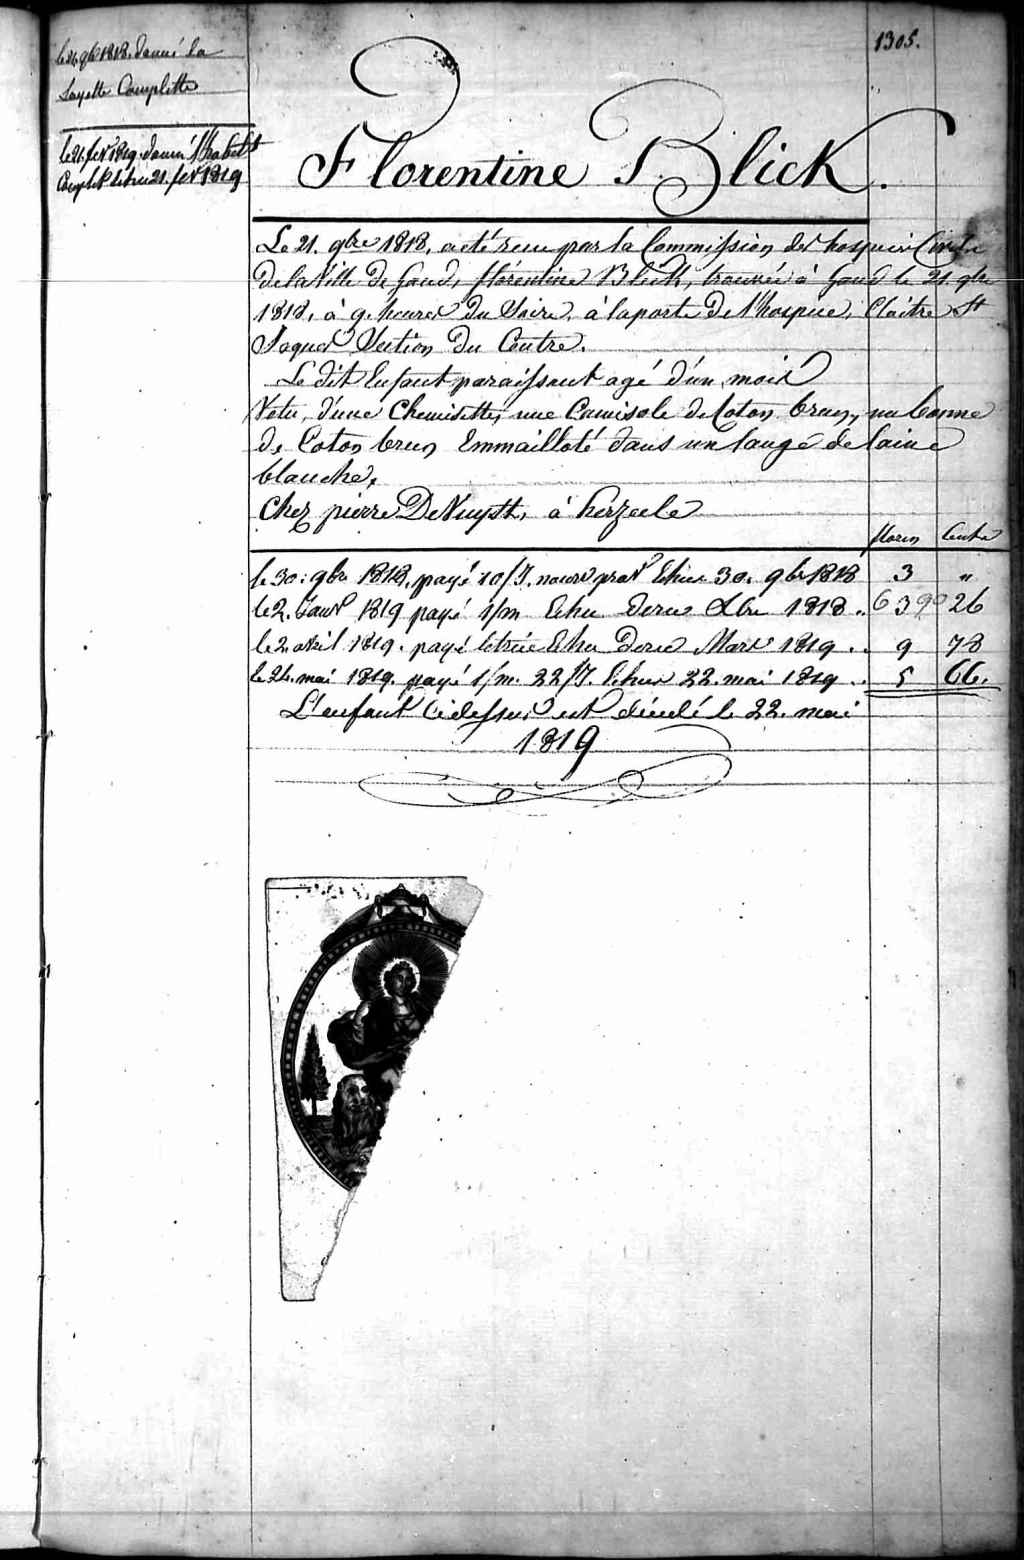 1305.
le 26 9bre 1818. donné la
Layette Complette
le 21. fevr 1819. donné
21. fevr 1819
Florentine Blick.
Le 21. 9bre 1818, a été reçu par la Commission des hospices Civils
de la Ville de Gand, florentine Blick, trouvée à Gand le 21. 9bre
1818, à 9. heures du Soire, à la porte de l'hospice, Cloître St
Jaques Section du Centre.
Le dit Enfant paraissant agé d'un mois
Vetu, d'une Chemisette, une Camisole de Coton brun, un bonnet
de Coton brun Emmailloté dans un lange de laine
blanche,
Chez pierre DeNuyst, à herzeele
florin Cents
le 30: 9bre 1818. payé 10/J. nourr Echus 30. 9bre 1818 3 "
le 2. Janvr 1819 payé 1/m Echu 1818 .. 6 26
le 2 avril 1819. payé Echu Mars 1819 .. 9 78
le 24. mai 1819. payé 1/m. 22/J. Echus 22. mai 1819 .. 5 66.
L'enfant Cidessus est décédé le 22. mai
1819